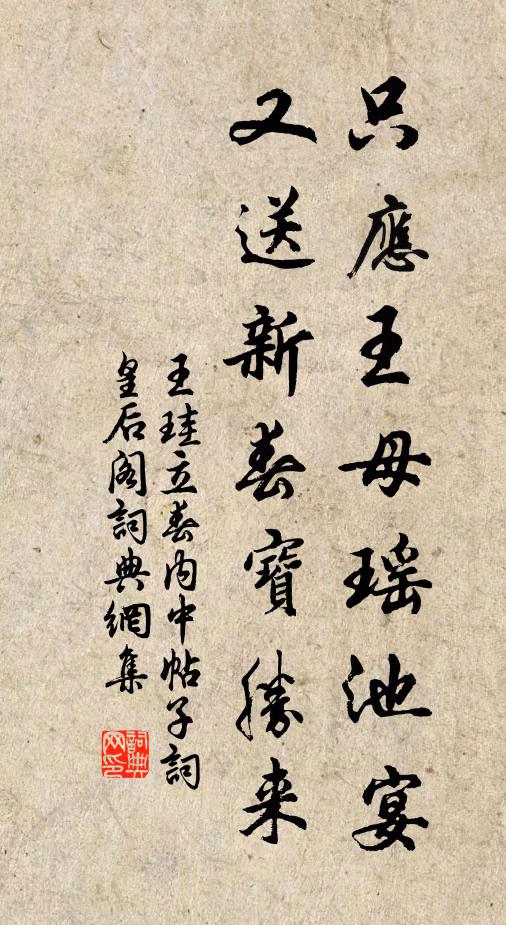 只應王母瑶池宴
又送新春寶勝来
王珪立春内中帖子詞
皇后阁詞典網集
詞典网印